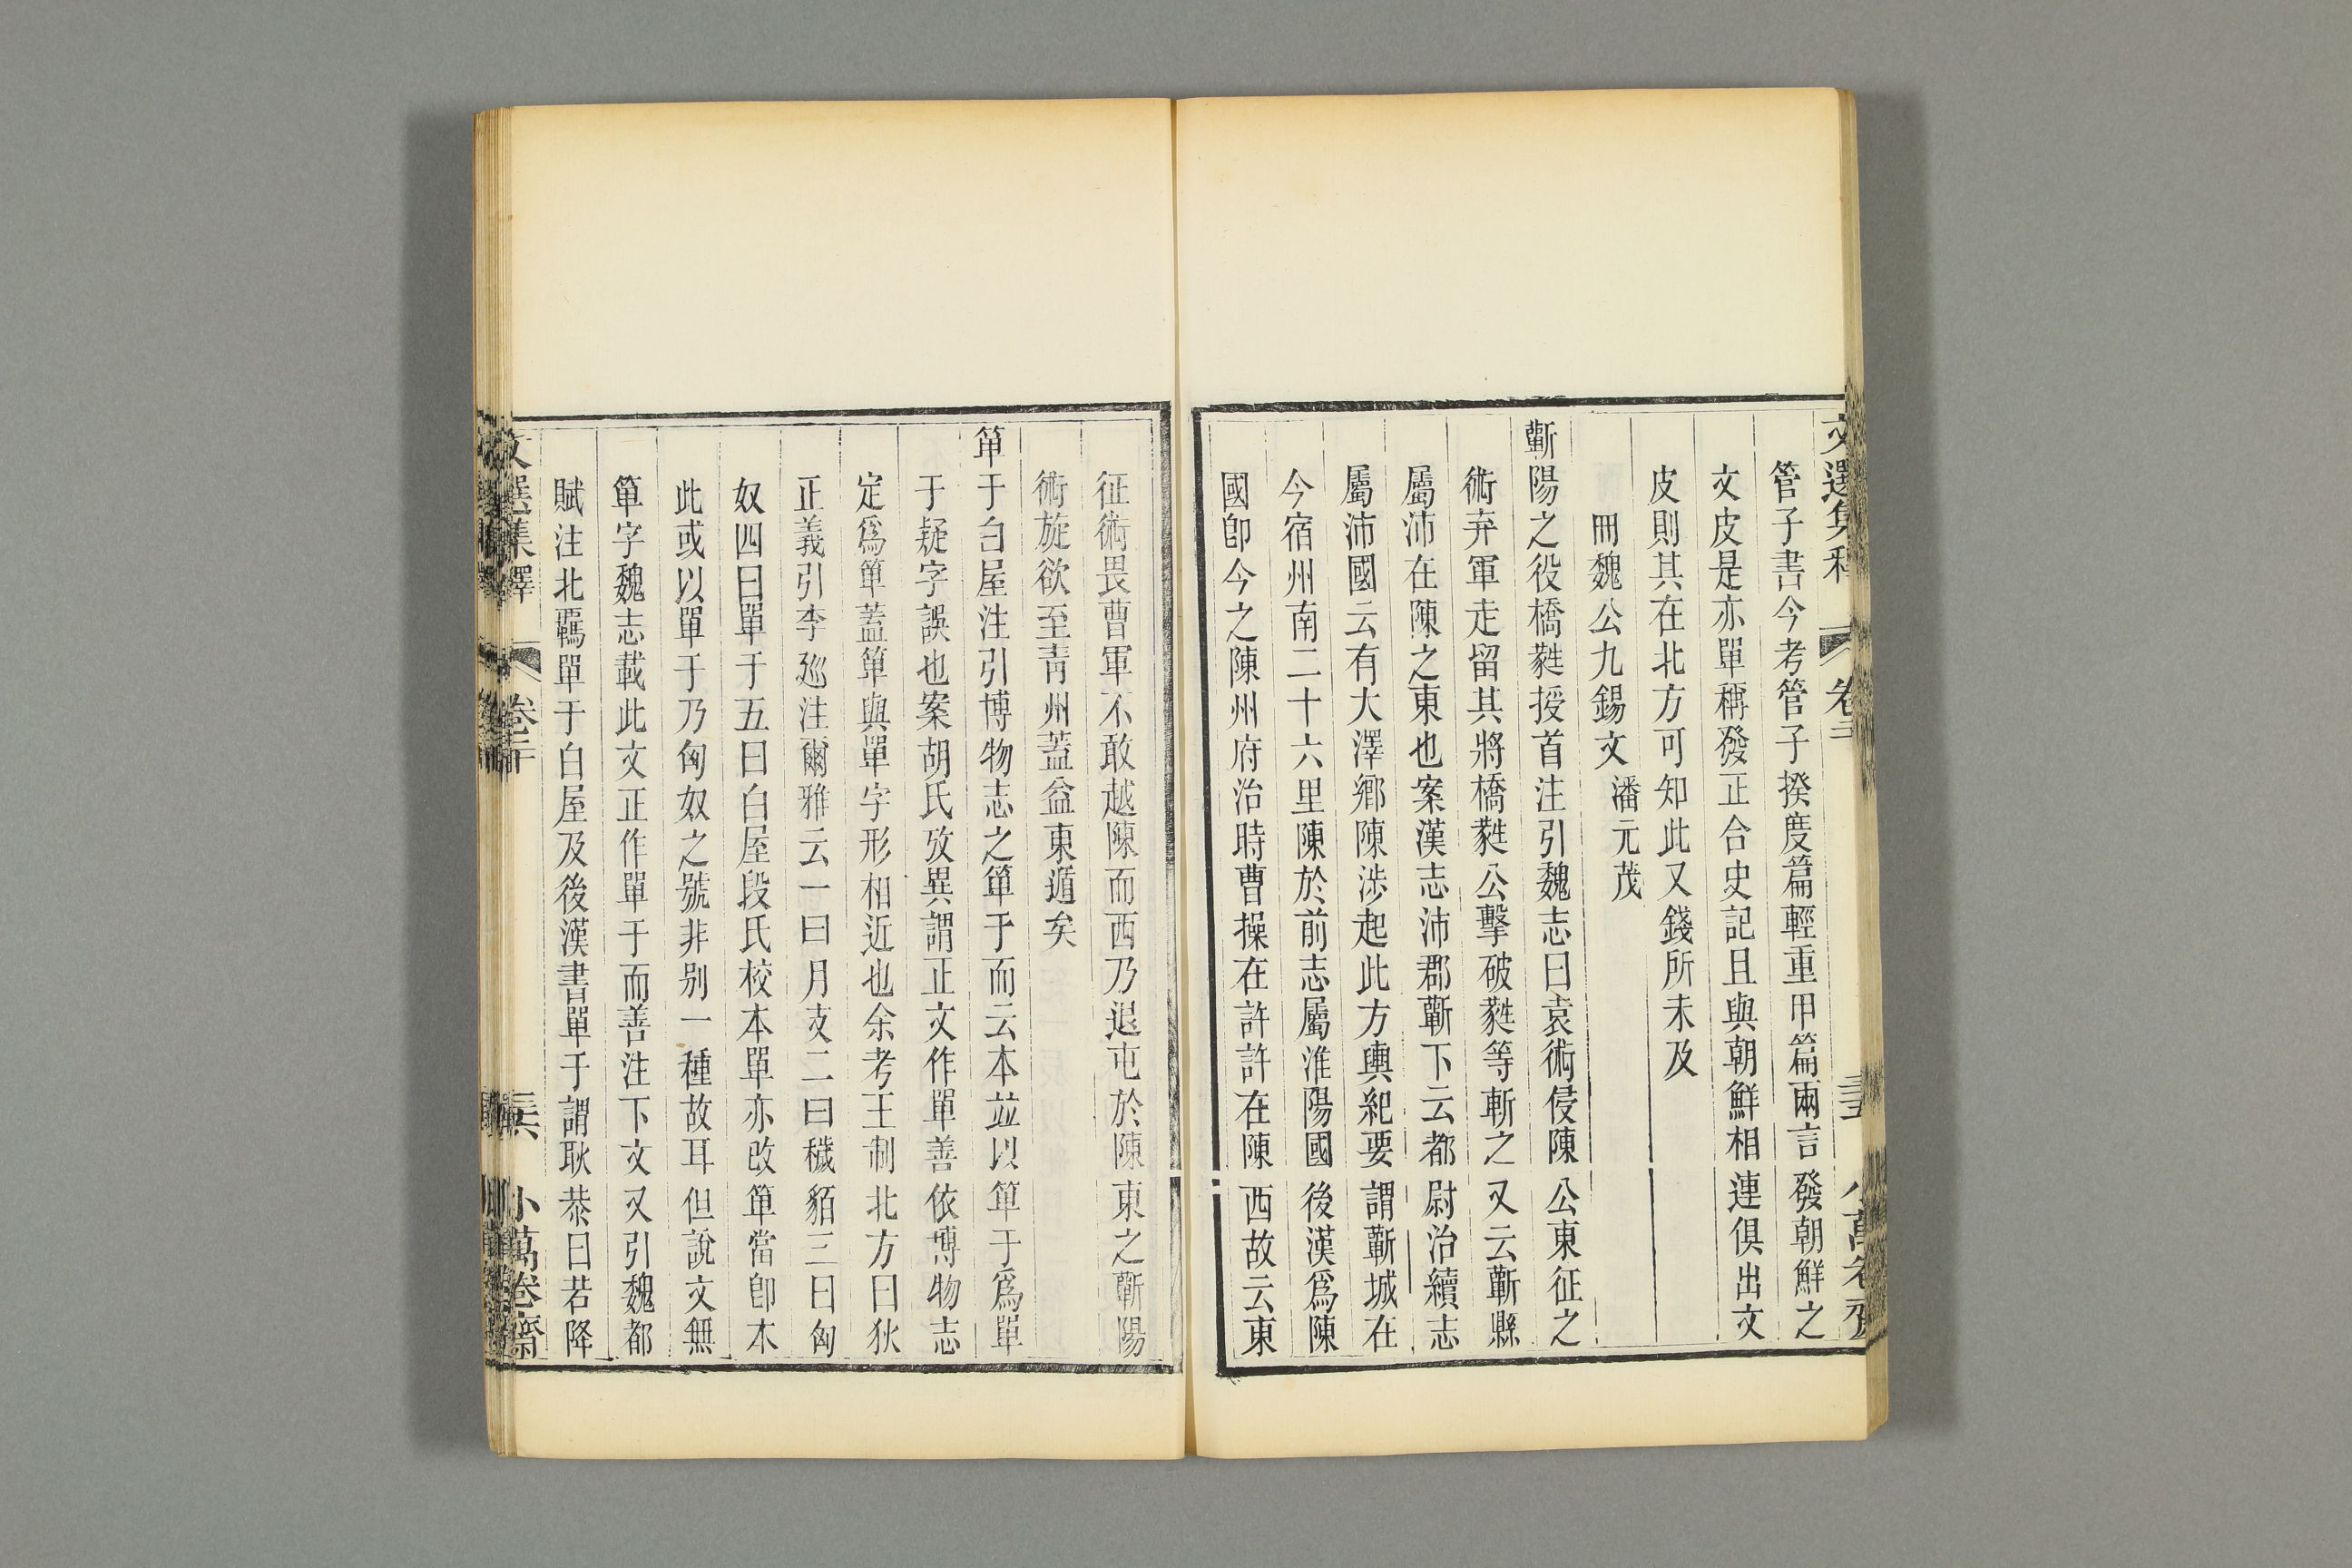 管子書今考管子揆度篇輕重甲篇兩言發朝鮮之
文皮是亦單稱發正合史記且與朝鮮相連俱出文
皮則其在北方可知此又錢所未及
冊魏公九錫文 潘元茂
蘄陽之役橋蕤授首注引魏志曰袁術侵陳公東征之
術弃軍走留其將橋蕤公擊破蕤等斬之又云蘄縣
屬沛在陳之東也案漢志沛郡蘄下云都尉治續志
屬沛國云有大澤鄉陳涉起此方輿紀要謂蘄城在
今宿州南二十六里陳於前志屬淮陽國後漢爲陳
國卽今之陳州府治時曹操在許許在陳西故云東
征術畏曹軍不敢越陳而西乃退屯於陳東之蘄陽
術旋欲至靑州蓋益東遁矣
箄于白屋注引博物志之箄于而云本並以箄于爲單
于疑字誤也案胡氏攷異謂正文作單善依博物志
定爲箄蓋箄與單字形相近也余考王制北方曰狄
正義引李廵注爾雅云一曰月支二曰穢貊三曰匈
奴四曰單于五曰白屋段氏校本單亦改箄當卽本
此或以單于乃匈奴之號非别一種故耳但說文無
箄字魏志載此文正作單于而善注下文又引魏都
賦注北羈單于白屋及後漢書單于謂耿恭曰若降
文選集釋 卷二十 三六 小萬卷齋